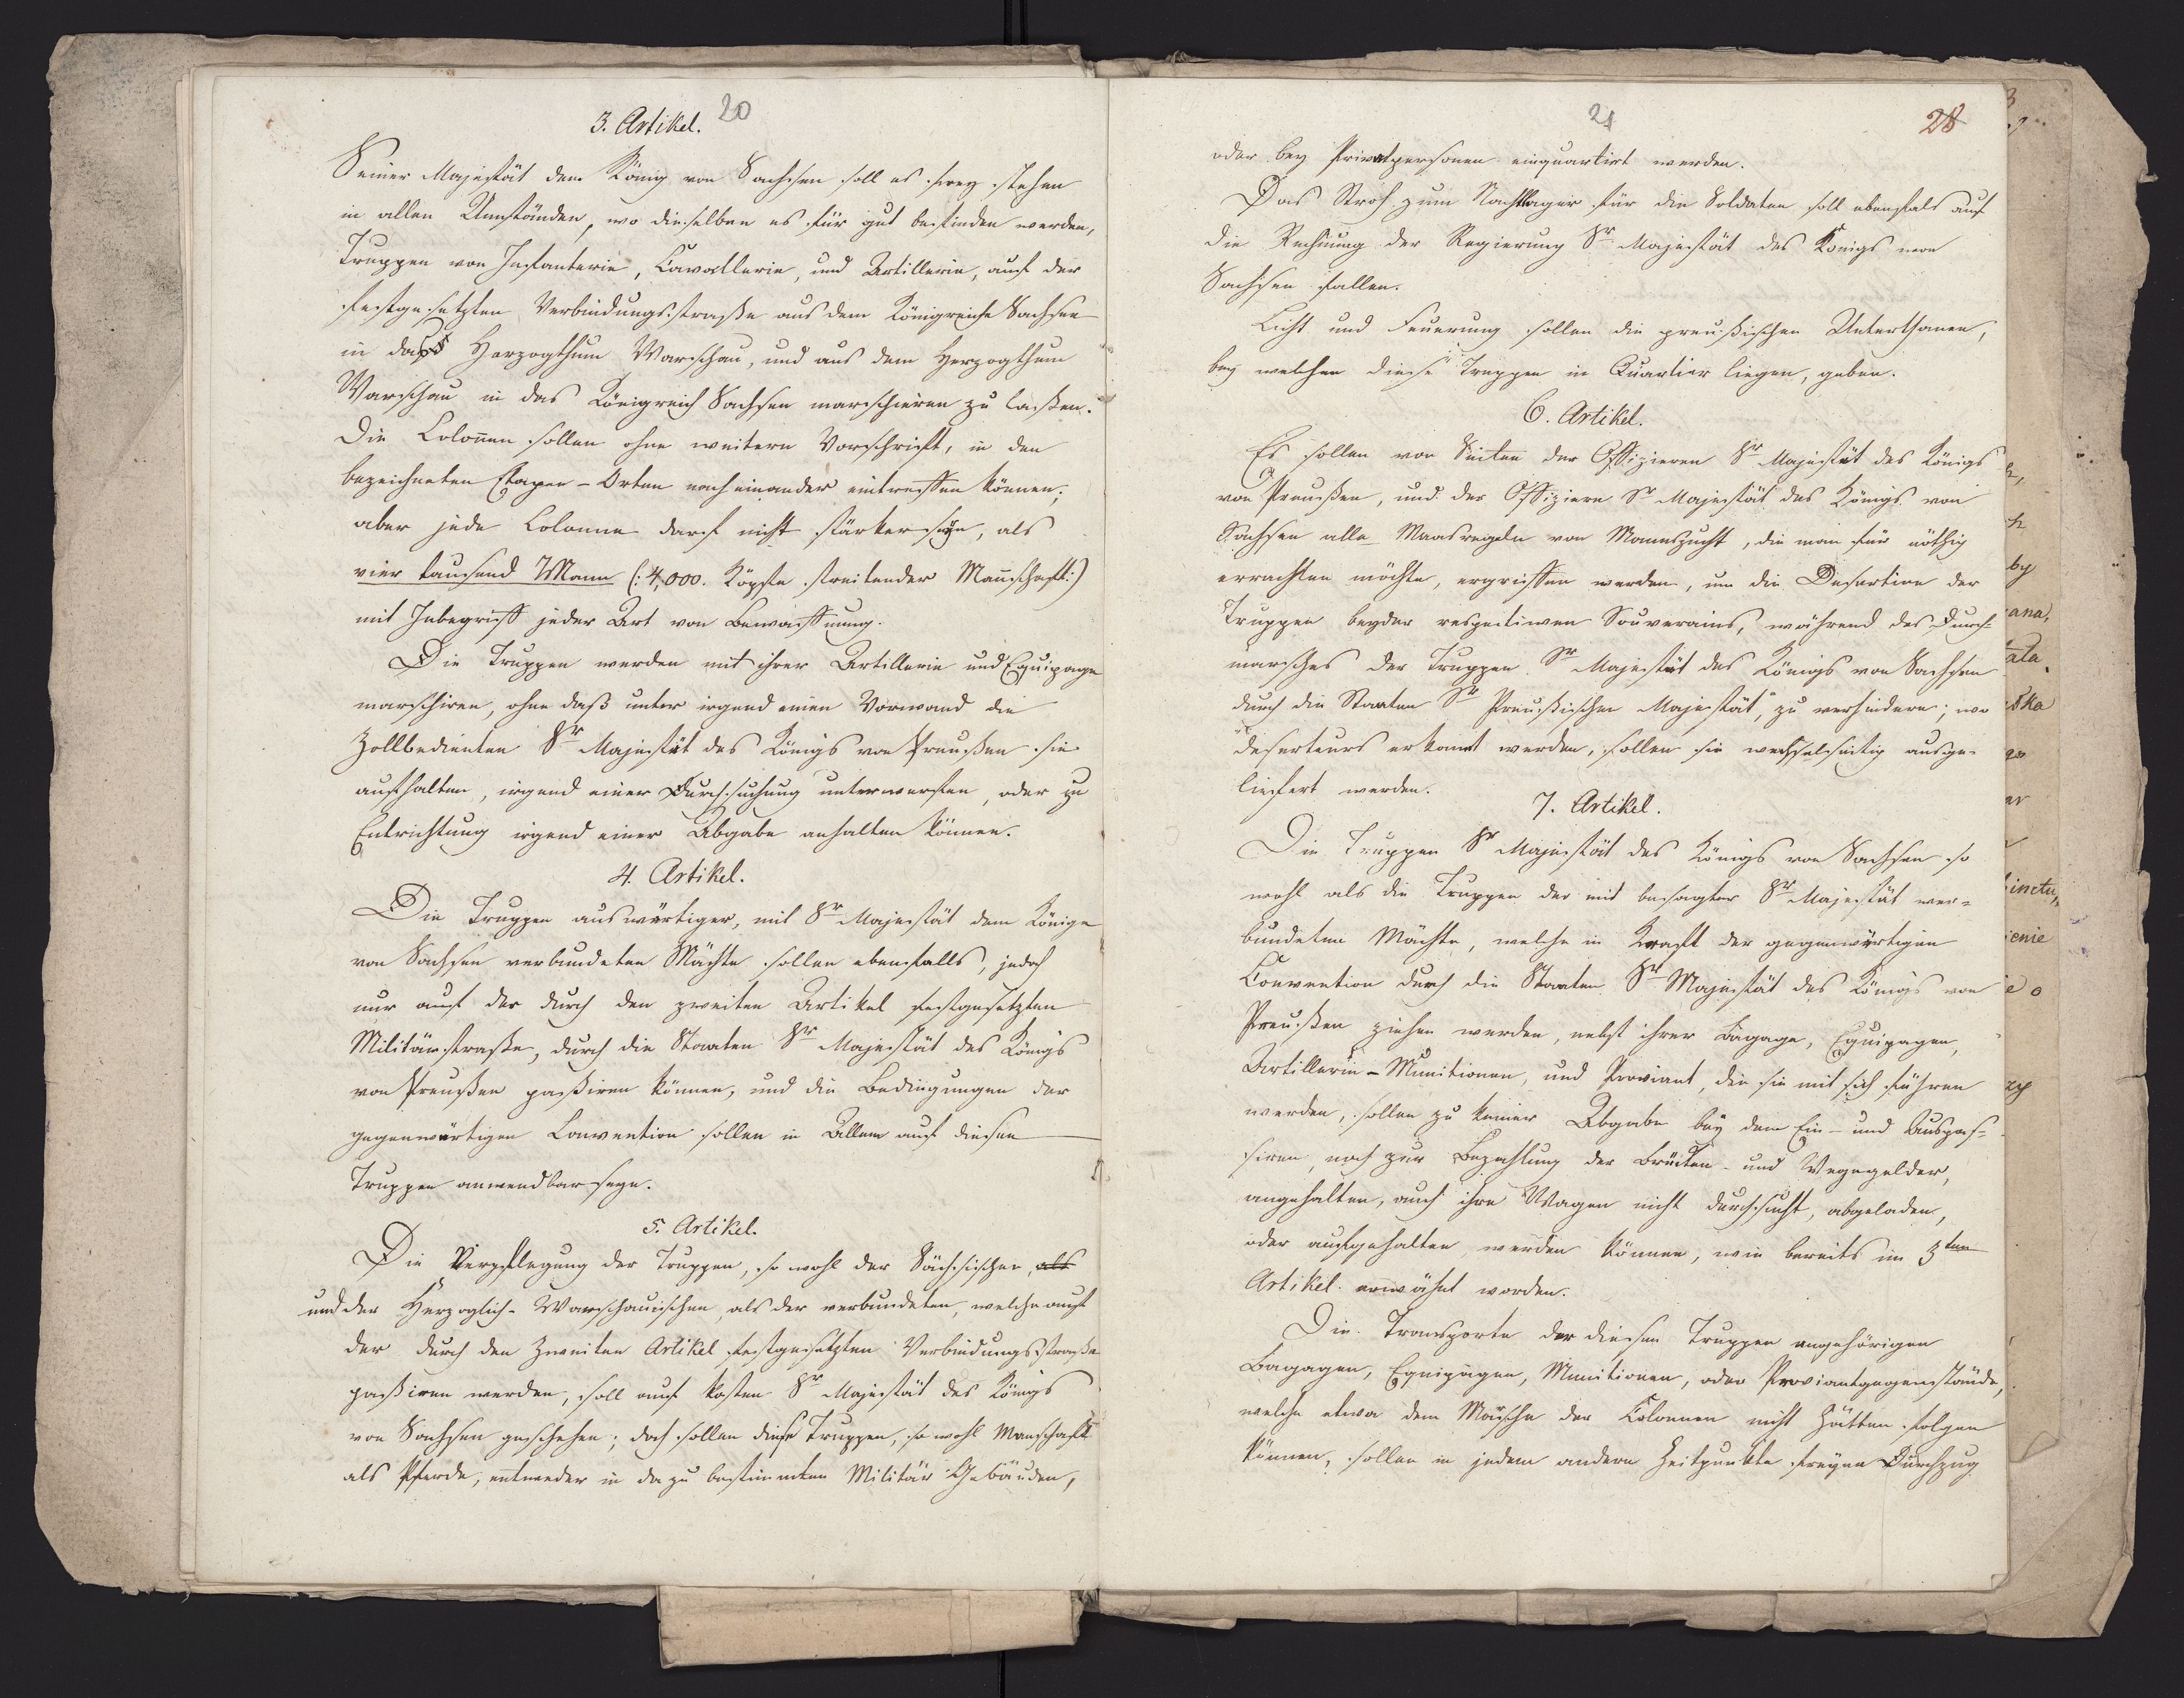 3. Artikel. 20
Seiner Majestät dem König von Sachsen soll es frey stehen
in allen Umständen, wo dieselben es für gut befinden werden,
Truppen von Infanterie, Cavallerie, und Artillerie, auf der
festgesetzten Verbindungsstraße aus dem Königreiche Sachsen
in das Herzogthum Warschau, und aus dem Herzogthum
Warschau in das Königreich Sachsen marschieren zu laßen.
Die Colon̄en sollen ohne weitern Vorschrift, in den
bezeichneten Etapen-Orten nach einander eintreffen können;
aber jede Colonne darf nicht stärker seyn, als
vier tausend Mann (: 4,000. Köpfe streitender Man̄schaft :)
mit Inbegriff jeder Art von Bewaffnung.
Die Truppen werden mit ihrer Artillerie und Equipage
marschiren, ohne daß unter irgend einen Vorwand die
Zollbedienten Sr Majestät des Königs von Preußen sie
aufhalten, irgend einer Durchsuchung unterwerfen, oder zu
Entrichtung irgend einer Abgabe anhalten können.
4. Artikel.
Die Truppen auswärtiger, mit Sr Majestät dem Könige
von Sachsen verbundeten Mächte sollen ebenfalls, jedoch
nur auf der durch den zweiten Artikel festgesetzten
Militärstraße, durch die Staaten Sr Majestät des Königs
von Preußen paßiren können, und die Bedingungen der
gegenwärtigen Convention sollen in Allem auf diesen
Truppen anwendbar seyn.
5. Artikel.
Die Verpflegung der Truppen, so wohl der Sächsischen, als
und der Herzoglich-Warschauischen, als der verbundeten, welche auf
der durch den Zweiten Artikel festgesetzten Verbindungsstraße
paßiren werden, soll auf Kosten Sr Majestät des Königs
von Sachsen geschehen; doch sollen diese Truppen, so wohl Manschaft
als Pferde, entweder in dazu bestimmten Militär-Gebäuden,
21 28
oder bey Privatpersonen einquartirt werden.
Das Stroh zum Nachtlager für die Soldaten soll ebenfals auf
die Rechnung der Regierung Sr Majestät des Königs von
Sachsen fallen.
Licht und Feuerung sollen die preußischen Unterthanen,
bey welchen diese Truppen in Quartier liegen, geben.
6. Artikel.
Es sollen von Seiten der Offizieren Sr Majestät des Königs
von Preußen, und der Offiziere Sr Majestät des Königs von
Sachsen alle Maasregeln von Mannszucht, die man für nöthig
errachten möchte, ergriffen werden, um die Desertion der
Truppen beyder respectiven Souverains, während des Durch-
marsches der Truppen Sr Majestät des Königs von Sachsen
durch die Staaten Sr Preußischen Majestät, zu verhindern; wo
Deserteurs erkannt werden, sollen sie wechselseitig ausge-
liefert werden.
7. Artikel.
Die Truppen Sr Majestät des Königs von Sachsen so
wohl als die Truppen der mit besagter Sr Majestät ver-
bundeten Mächte, welche in Kraft der gegenwärtigen
Convention durch die Staaten Sr Majestät des Königs von
Preußen ziehen werden, nebst ihrer Bagage, Equipagen,
Artillerie-Munitionen, und Proviant, die sie mit sich führen
werden, sollen zu keiner Abgabe bey dem Ein- und Auspas-
siren, noch zur Bezahlung der Brücken- und Wegegelder,
angehalten, auch ihre Wagen nicht durchsucht, abgeladen,
oder aufgehalten werden können, wie bereits im 3ten
Artikel erwähnt worden.
Die Transporte der diesen Truppen angehörigen
Bagagen, Equipagen, Munitionen, oder Proviantgegenstände,
welche etwa dem Marsche der Colonnen nicht hätten folgen
können, sollen in jedem andern Zeitpunkte freyen Durchzug
by
ana,
ala
ska
go
er
inctu,
ienie
e o